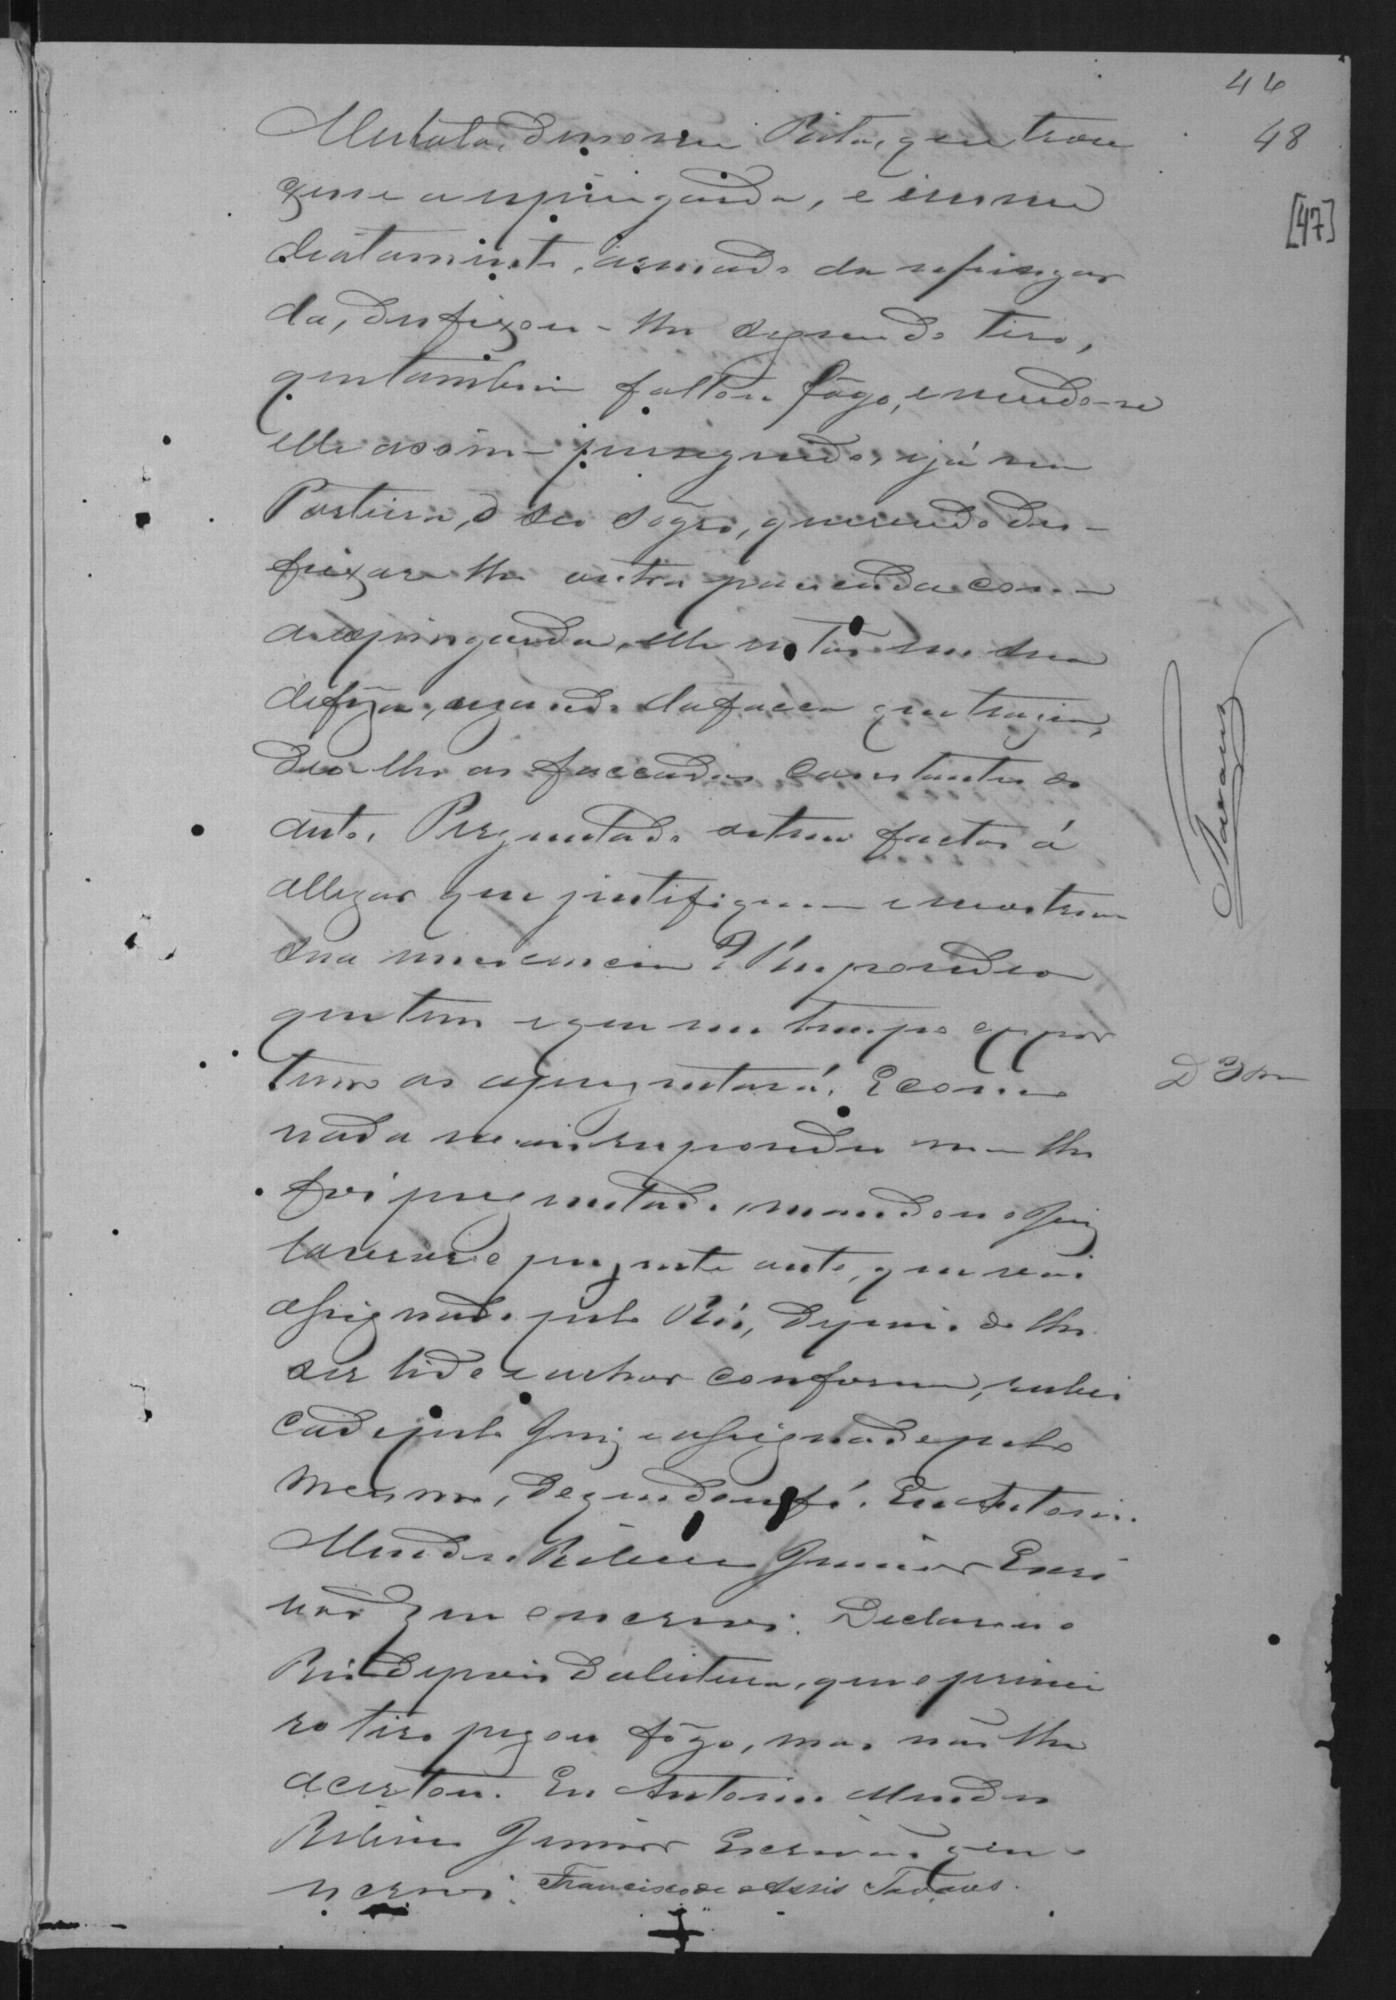 46
48
[47]
Mulata, de nome Rita, que trou
xesse a espingarda, e imme
diatamente, armado da espingar
da, desfixou-lhe segundo tiro,
que tambem faltou fôgo, e vendo-se
elle assim perseguido, e já na
Porteira, o seo sôgro, querendo des-
feixar-lhe outra pancada com
a espingarda, elle então em sua
defeza, usando da faca que trazia,
deo-lhe as faccadas constantes do
auto. Perguntado se tem factos á
allegar que justifiquem e mostrem
sua innocencia? Respondeo
que tem e que em tempo oppor
tuno as apresentará. E como
nada mais respondeu nem lhe
foi perguntado, mandou o Juiz
lavrar o presente auto, que vai
assignado pelo Réo, depois de lhe
ser lido e achar conforme, rubri
cado pelo Juiz e assignado pelo
mesmo, de que dou fé. Eu Antonio
Mendes Ribeiro Junior Escri
vão que o escrevi. Declarou o
Réo depois da leitura, que o primei
ro tiro pegou fôgo, mas não lhe
acertou. Eu Antonio Mendes
Ribeiro Junior Escrivão que o
escrevi. Francisco de Assis Tavares.
Tavares